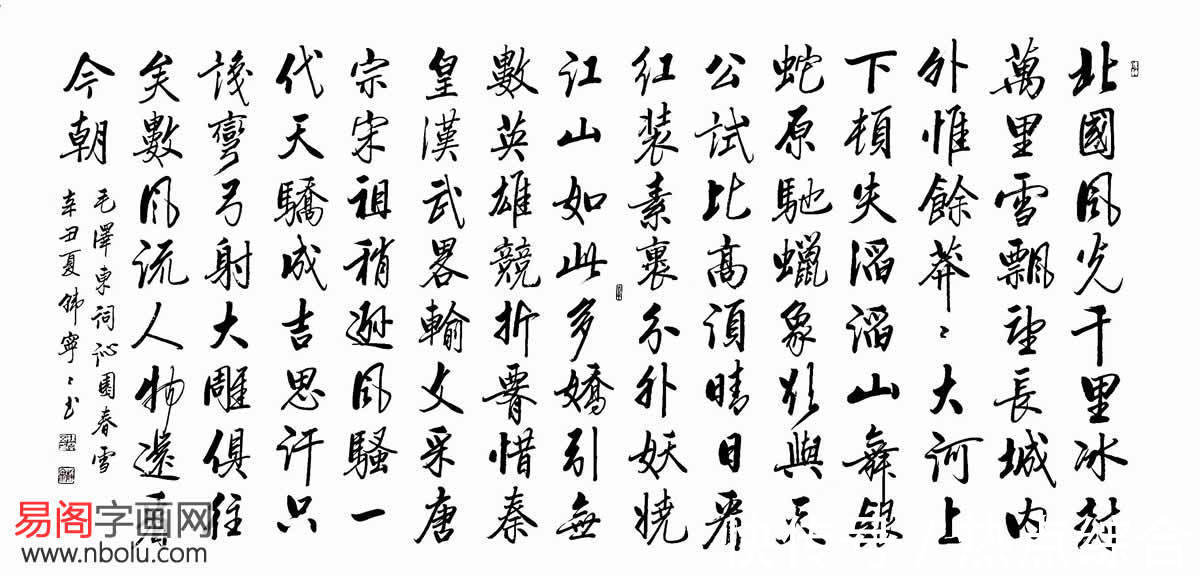 北國風光千里冰封
萬里雪飄望長城内
外惟餘莽〻大河上
下頓失滔滔山舞銀
蛇原馳蠟象欲與天
公試比高須晴日看
红装素裹分外妖嬈
江山如此多嬌引無
數英雄競折腰惜秦
皇漢武畧輸文采唐
宗宋祖稍遜風騷一
代天驕成吉思汗只
識彎弓射大雕俱往
矣數風流人物還看
今朝
毛澤東詞沁園春雪
辛丑夏韩寧〻书
易阁字画网
www.nbolu.com
快传号/热点综合